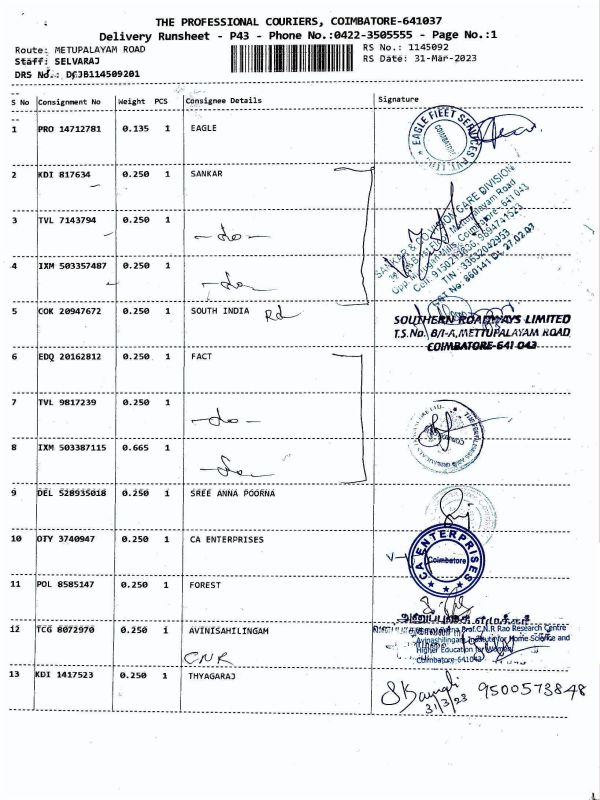 THE PROFESSIONAL COURIERS, COIMBATORE-641037
Delivery Runsheet - P43 - Phone No.:0422-3505555 - Page No.:1
Route: METUPALAYAM ROAD RS No.: 1145092
Staff: SELVARAJ RS Date: 31-Mar-2023
DRS No.: DCJB114509201
S No Consignment No Weight PCS Consignee Details Signature
1 PRO 14712781 0.135 1 EAGLE
EAGLE FLEET SERVICES
COIMBATORE
2 KDI 817634 0.250 1 SANKAR
3 TVL 7143794 0.250 1
-do-
4 IXM 503357487 0.250 1
-do-
SANKAR & CO VISION CARE DIVISION
Mettupalayam Road
Coimbatore-641 043
TIN : 33632042953
5 COK 20947672 0.250 1 SOUTH INDIA Rd
SOUTHERN ROADWAYS LIMITED
T.S.No. 8/1-A, METTUPALAYAM ROAD
COIMBATORE-641 043
6 EDQ 20162812 0.250 1 FACT
7 TVL 9817239 0.250 1
-do-
8 IXM 503387115 0.665 1
-do-
9 DEL 528935018 0.250 1 SREE ANNA POORNA
10 OTY 3740947 0.250 1 CA ENTERPRISES
CA ENTERPRISES
Coimbatore
11 POL 8585147 0.250 1 FOREST
12 TCG 8072970 0.250 1 AVINISAHILINGAM
CNR
Prof.C.N.R Rao Research Centre
Avinashilingam Institute for Home Science and
Higher Education for Women
Coimbatore-641043
13 KDI 1417523 0.250 1 THYAGARAJ
31/3/23 9500573848